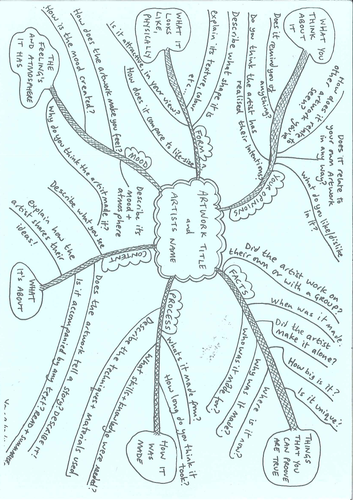 ARTWORK TITLE
and
ARTISTS NAME
YOUR OPINIONS
WHAT YOU
THINK
ABOUT IT
Does it remind you of
anything?
Do you think the artist has
realised their intentions?
Does it relate to
your own Artwork
in any way?
What do you like/dislike
in it?
FORM
WHAT IT
LOOKS
LIKE,
PHYSICALLY
Describe what shape it is
explain its texture, colour
etc.
Is it attractive in your view?
How does it compare to life-size
MOOD
THE
FEELING'S
AND ATMOSPHERE
IT HAS
How is the mood created?
How does the artwork make you feel?
Why do you think the artist made it?
Describe its
mood &
atmosphere
CONTENT
WHAT
IT'S ABOUT
Describe what you see
Explain how the
artist shares their
ideas!
Does the artwork tell a story? DESCRIBE IT!
Is it accompanied by any text? READ +
PROCESS
HOW IT
WAS
MADE
What's it made from?
How long do you think it
took?
What skill + knowledge were needed?
Describe the techniques + materials used
FACTS
THINGS
THAT YOU
CAN PROVE
ARE TRUE
Did the artist work on
their own or with a GROUP?
When was it made.
Did the artist
make it alone?
How big is it?
Is it unique?
Where is it now?
Why was it made?
Who was it made
for?